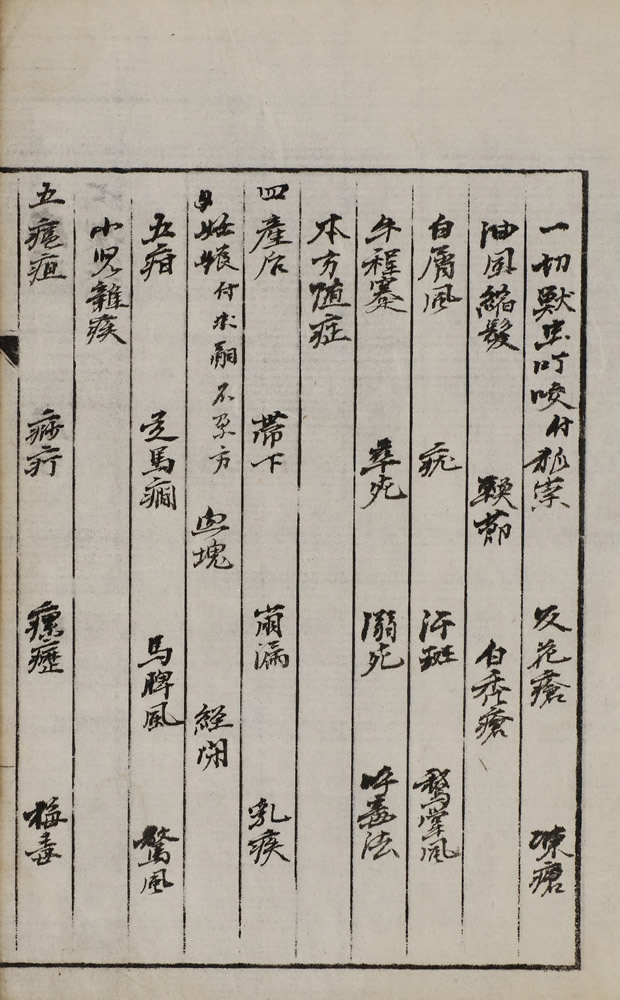 一切獸虫叮咬付狐祟 反花瘡 凍瘡
油風縮髮 軟節 白禿瘡
白屑風 疣 汗斑 鵞掌風
牛程蹇 卒死 溺死 吐毒法
本方 症
四產后 帶下 崩漏 乳疾
妊娠付求嗣不孕方 血塊 経閉
五疳 走馬 馬脾風 驚風
小児雜疾
五 疽 疔 瘰癧 梅毒